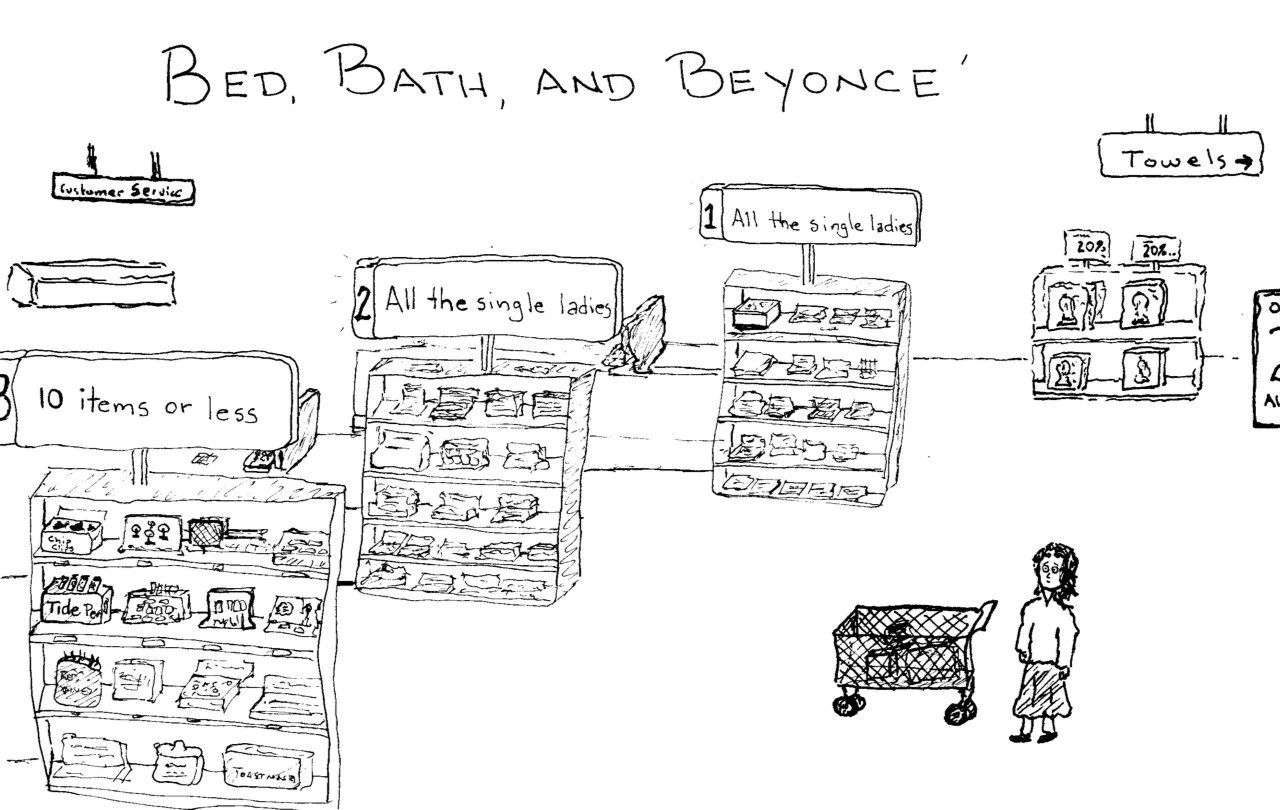 BED, BATH, AND BEYONCE'
Towels →
Customer Service
1 All the single ladies
20%
20%
2 All the single ladies
3 10 items or less
Chip Clips
Tide Pen